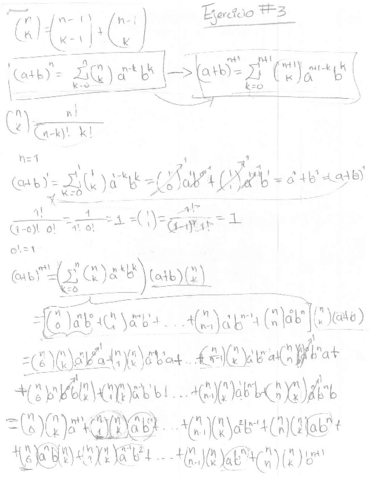 Ejercicio #3
(n k) = (n-1 k-1) + (n-1 k)
(a+b)^n = Σ_{k=0}^{n} (n k) a^{n-k} b^k → (a+b)^{n+1} = Σ_{k=0}^{n+1} (n+1 k) a^{n+1-k} b^k
(n k) = n! / (n-k)! k!
n=1
(a+b)^1 = Σ_{k=0}^{1} (1 k) a^{1-k} b^k = (1 0) a^1 b^0 + (1 1) a^0 b^1 = a^1 + b^1 = (a+b)^1
1! / (1-0)! 0! = 1 / 1! 0! = 1 = (1 1) = 1! / (1-1)! 1! = 1
0! = 1
(a+b)^{n+1} = (Σ_{k=0}^{n} (n k) a^{n-k} b^k) (a+b) (n k)
= [(n 0) a^n b^0 + (n 1) a^{n-1} b^1 + ... + (n n-1) a^1 b^{n-1} + (n n) a^0 b^n] (n k) (a+b)
= (n 0) (n k) a^n b^0 a + (n 1) (n k) a^{n-1} b^1 a + ... + (n n-1) (n k) a^1 b^{n-1} a + (n n) (n k) a^0 b^n a +
+ (n 0) a^n b^0 b (n k) + (n 1) (n k) a^{n-1} b^1 b + ... + (n n-1) (n k) a^1 b^{n-1} b + (n n) (n k) a^0 b^n b
= (n 0) (n k) a^{n+1} + (n 1) (n k) a^n b^1 + ... + (n n-1) (n k) a^2 b^{n-1} + (n n) (n k) a b^n +
+ (n 0) a^n b (n k) + (n 1) (n k) a^{n-1} b^2 + ... + (n n-1) (n k) a b^n + (n n) (n k) b^{n+1}